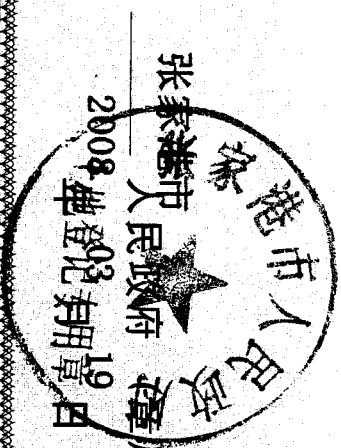 张家港市人民政府
2008年03月19日
家港市人民政
登记专用章